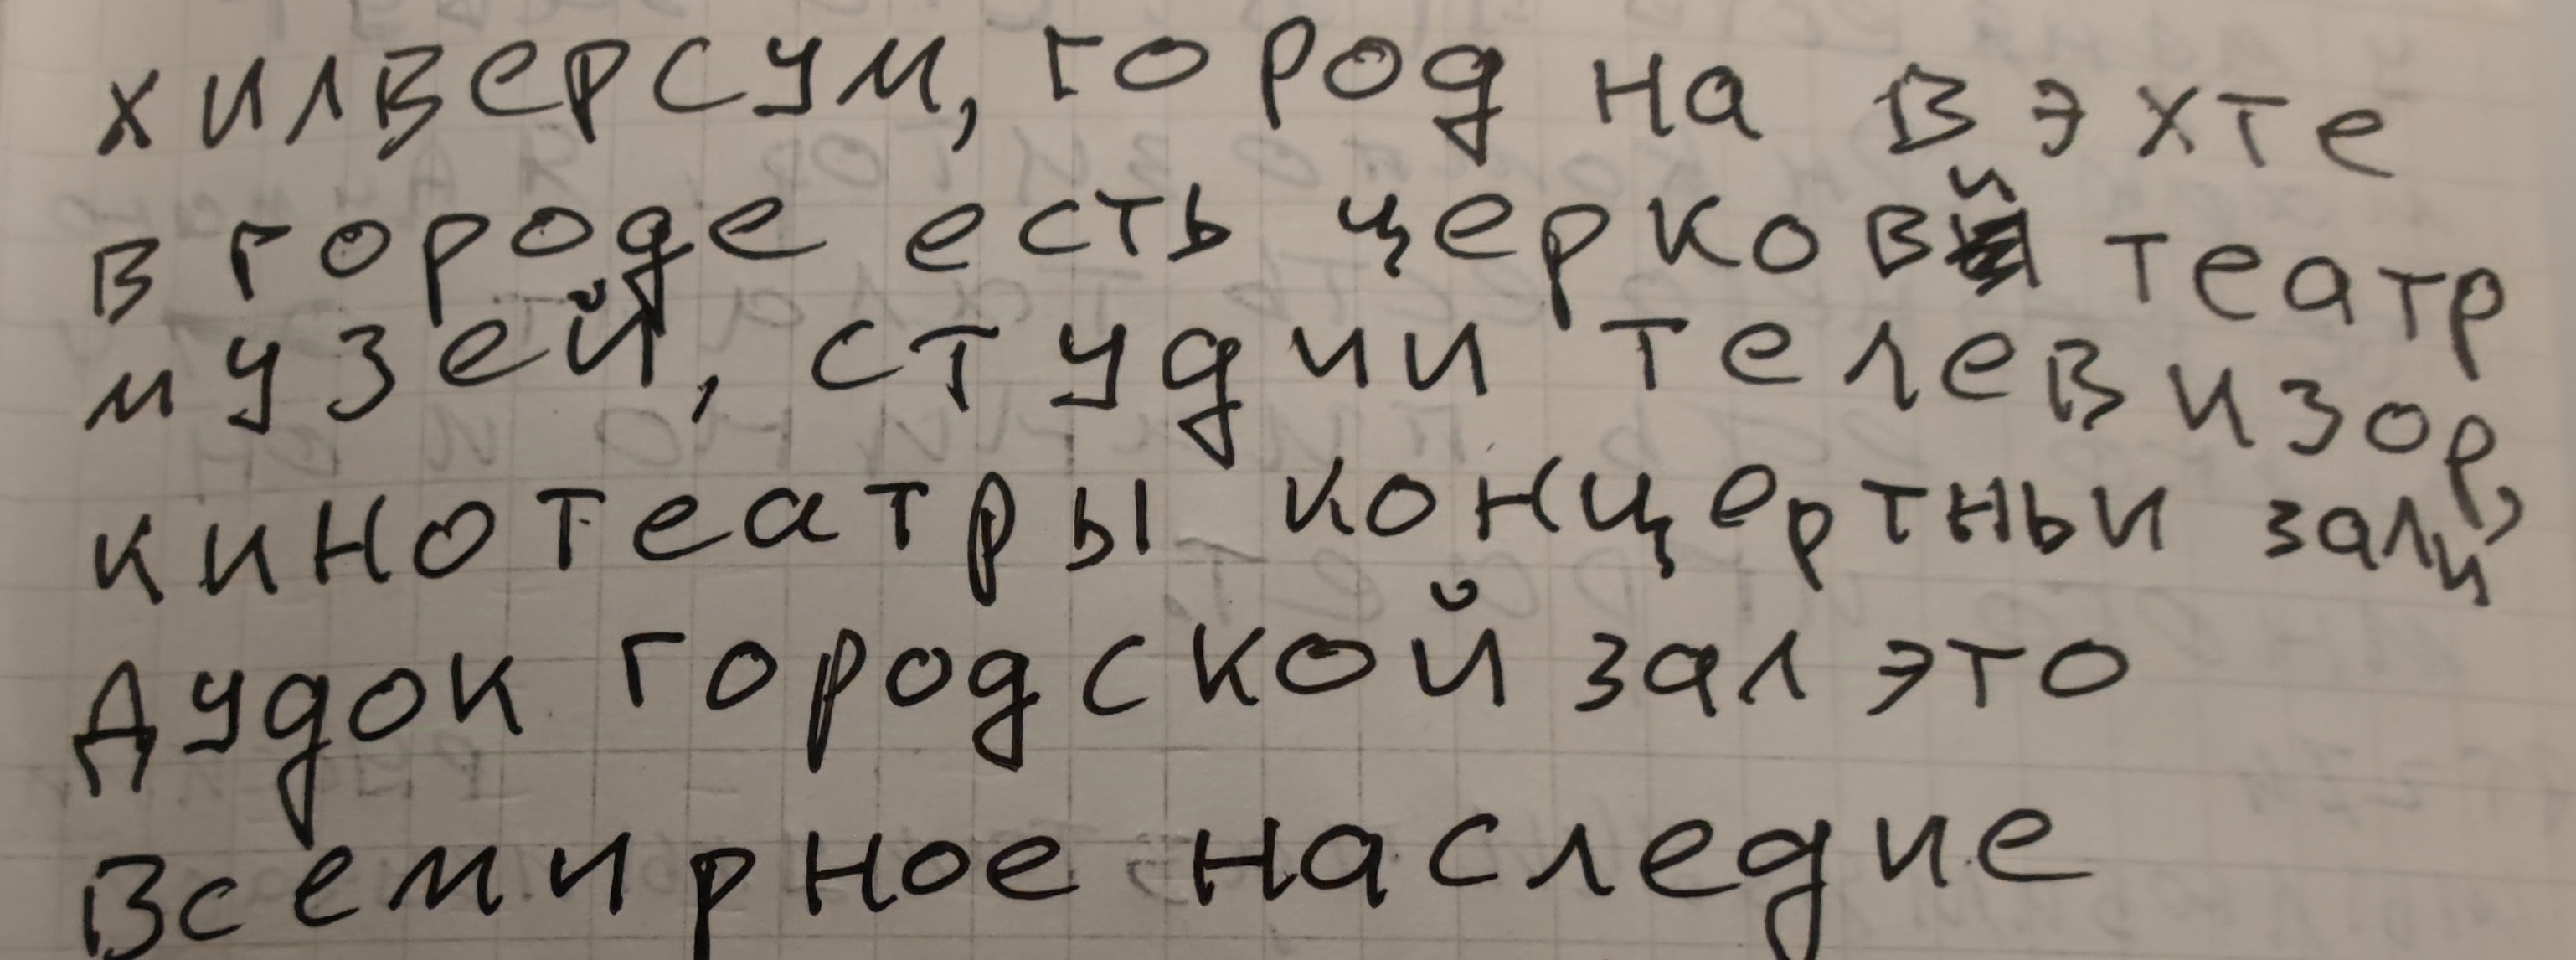 хилверсум, город на Вэхте
в городе есть церкови театр
музей, студии телевизор,
кинотеатры концертньи зали
Дудок городской зал это
Всемирное наследие